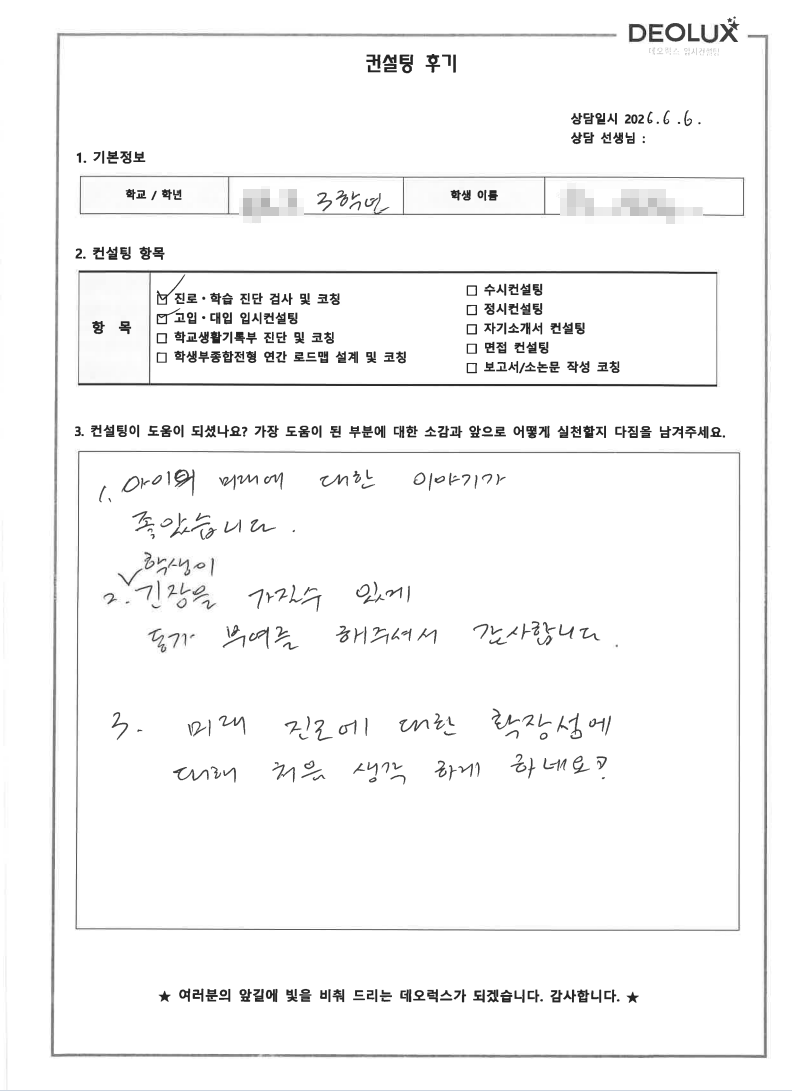 DEOLUX
데오럭스 입시컨설팅
컨설팅 후기
상담일시 2026.6.6.
상담 선생님 :
1. 기본정보
학교 / 학년 3학년 학생 이름
2. 컨설팅 항목
항 목
☑ 진로·학습 진단 검사 및 코칭
☑ 고입·대입 입시컨설팅
☐ 학교생활기록부 진단 및 코칭
☐ 학생부종합전형 연간 로드맵 설계 및 코칭
☐ 수시컨설팅
☐ 정시컨설팅
☐ 자기소개서 컨설팅
☐ 면접 컨설팅
☐ 보고서/소논문 작성 코칭
3. 컨설팅이 도움이 되셨나요? 가장 도움이 된 부분에 대한 소감과 앞으로 어떻게 실천할지 다짐을 남겨주세요.
1. 아이의 미래에 대한 이야기가
좋았습니다.
학생이
2. 긴장을 가질수 있게
동기 부여를 해주셔서 감사합니다.
3. 미래 진로에 대한 확장성에
대해 처음 생각 하게 하네요?
★ 여러분의 앞길에 빛을 비춰 드리는 데오럭스가 되겠습니다. 감사합니다. ★